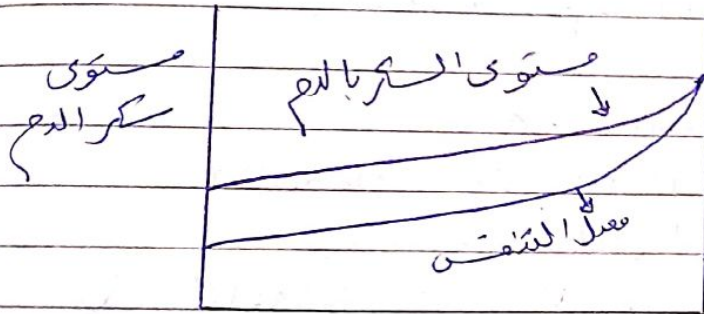 مستوى
سكر الدم
مستوى السكر بالدم
معدل التنفس